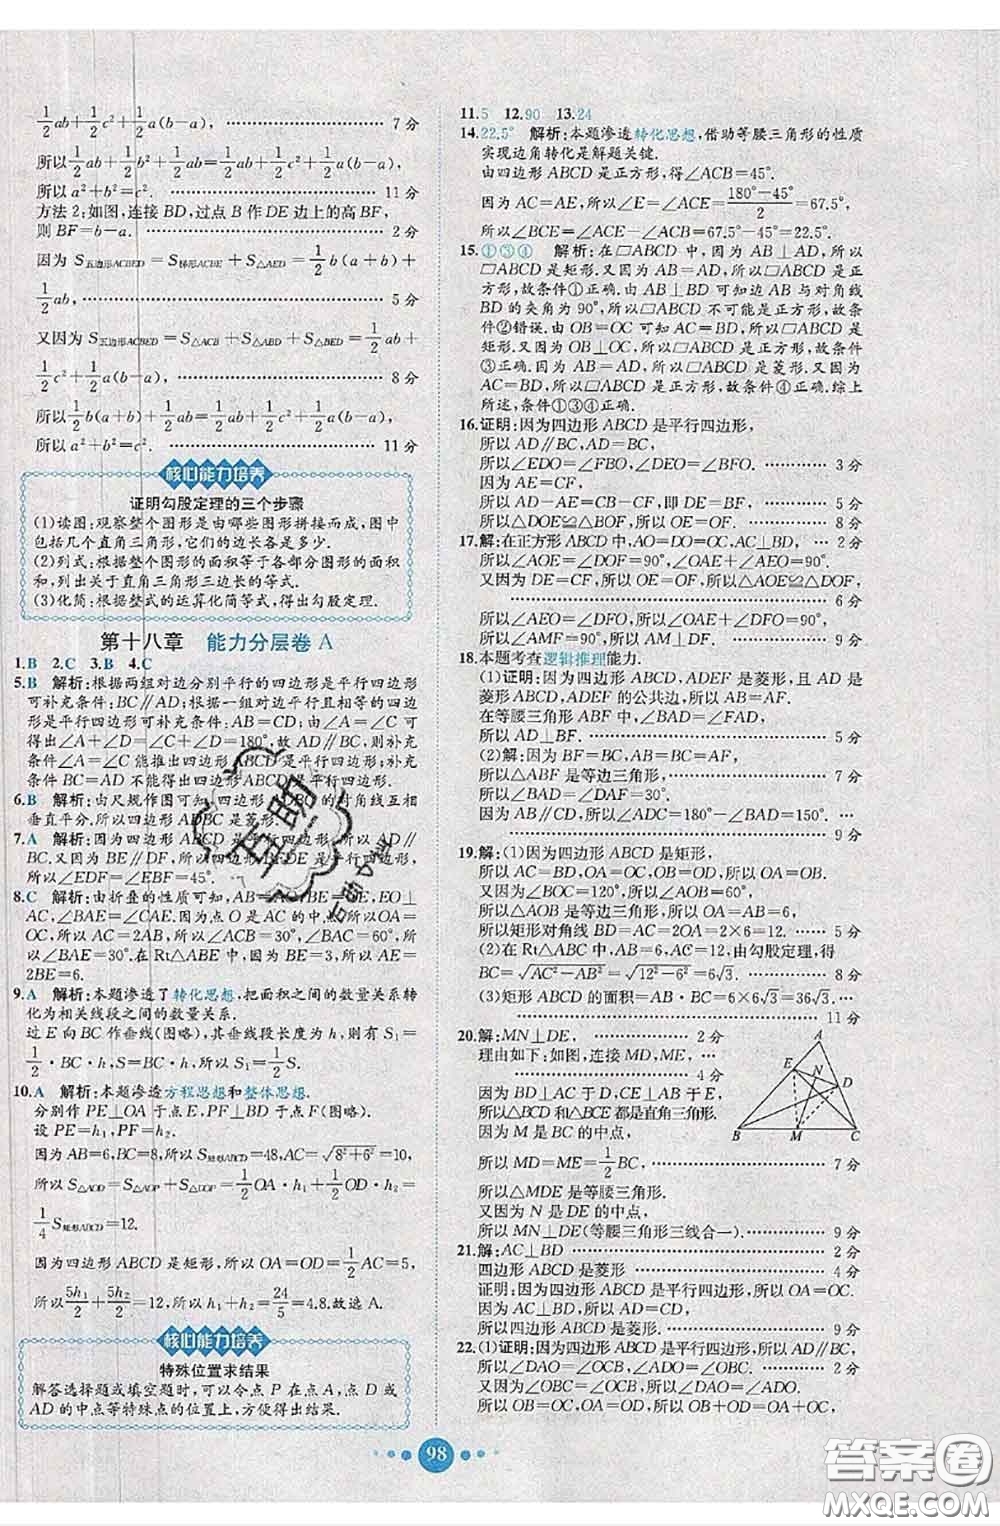 1/2ab+1/2c²+1/2a(b−a), ………… 7分
所以1/2ab+1/2b²+1/2ab=1/2ab+1/2c²+1/2a(b−a),
所以a²+b²=c². ………… 11分
方法2:如图,连接BD,过点B作DE边上的高BF,
则BF=b−a. ………… 2分
因为S五边形ACBED=S梯形ACBE+S△AED=1/2b(a+b)+
1/2ab, ………… 5分
又因为S五边形ACBED=S△ACB+S△ABD+S△BED=1/2ab+
1/2c²+1/2a(b−a), ………… 8分
所以1/2b(a+b)+1/2ab=1/2ab+1/2c²+1/2a(b−a),
所以a²+b²=c². ………… 11分
核心能力培养
证明勾股定理的三个步骤
(1)读图:观察整个图形是由哪些图形拼接而成,图中
包括几个直角三角形,它们的边长各是多少.
(2)列式:根据整个图形的面积等于各部分图形的面积
和,列出关于直角三角形三边长的等式.
(3)化简:根据整式的运算化简等式,得出勾股定理.
第十八章 能力分层卷A
1.B 2.C 3.B 4.C
5.B 解析:根据两组对边分别平行的四边形是平行四边形
可补充条件:BC∥AD;根据一组对边平行且相等的四边
形是平行四边形可补充条件:AB=CD;由∠A=∠C可
得出∠A+∠D=∠C+∠D=180°,故AD∥BC,则补充
条件∠A=∠C能推出四边形ABCD是平行四边形;补充
条件BC=AD不能得出四边形ABCD是平行四边形.
6.B 解析:由尺规作图可知,四边形ADBC的对角线互相
垂直平分,所以四边形ADBC是菱形.
7.A 解析:因为四边形ABCD是平行四边形,所以AD∥
BC.又因为BE∥DF,所以四边形BEDF是平行四边形,
所以∠EDF=∠EBF=45°.
8.C 解析:由折叠的性质知,∠AOE=∠ABC=90°,EO⊥
AC,∠BAE=∠CAE.因为点O是AC的中点,所以OA=
OC,所以AE=CE,所以∠CAE=∠ACE=∠BAE,所以
∠BAE=30°.在Rt△ABE中,因为BE=3,所以AE=
2BE=6.
9.A 解析:本题渗透了转化思想,把面积之间的数量关系转
化为相关线段之间的数量关系.
过E向BC作垂线(图略),其垂线段长度为h,则有S₁=
1/2·BC·h,S=BC·h,所以S₁=1/2S.
10.A 解析:本题渗透方程思想和整体思想.
分别作PE⊥OA于点E,PF⊥BD于点F(图略).
设PE=h₁,PF=h₂,
因为AB=6,BC=8,所以S矩形ABCD=48,AC=√(8²+6²)=10,
所以S△AOD=S△AOP+S△DOP=1/2OA·h₁+1/2OD·h₂=
1/4S矩形ABCD=12.
因为四边形ABCD是矩形,所以OA=OD=1/2AC=5,
所以5h₁/2+5h₂/2=12,所以h₁+h₂=24/5=4.8.故选A.
核心能力培养
特殊位置求结果
解答选择题或填空题时,可以令点P在点A,点D或
AD的中点等特殊点的位置上,方便得出结果.
11.5 12.90 13.24
14.22.5° 解析:本题渗透转化思想,借助等腰三角形的性质
实现边角转化是解题关键.
由四边形ABCD是正方形,得∠ACB=45°.
因为AC=AE,所以∠E=∠ACE=(180°−45°)/2=67.5°,
所以∠BCE=∠ACE−∠ACB=67.5°−45°=22.5°.
15.①③④ 解析:在▱ABCD中,因为AB⊥AD,所以
▱ABCD是矩形.又因为AB=AD,所以▱ABCD是正方
形,故条件①正确.由AB⊥BD可知边AB与对角线
BD的夹角为90°,所以▱ABCD不可能是正方形,故条
件②错误.由OB=OC可知AC=BD,所以▱ABCD是矩
形.又因为OB⊥OC,所以▱ABCD是正方形,故条件
③正确.因为AB=AD,所以▱ABCD是菱形.又因为
AC=BD,所以▱ABCD是正方形,故条件④正确.综上
所述,条件①③④正确.
16.证明:因为四边形ABCD是平行四边形,
所以AD∥BC,AD=BC,
所以∠EDO=∠FBO,∠DEO=∠BFO. ………… 3分
因为AE=CF,
所以AD−AE=CB−CF,即DE=BF, ………… 5分
所以△DOE≌△BOF,所以OE=OF. ………… 8分
17.解:在正方形ABCD中,AO=DO=OC,AC⊥BD, … 2分
所以∠AOE=∠DOF=90°,∠OEA+∠OAE=90°.
又因为DE=CF,所以OE=OF,所以△AOE≌△DOF,
………… 6分
所以∠OAE=∠ODF,所以∠ODF+∠DEM=90°,
所以∠AMF=90°. ………… 9分
18.本题考查逻辑推理能力.
(1)证明:因为四边形ABCD,ADEF是菱形,且AD是
菱形ABCD,ADEF的公共边,所以AB=AD=AF.
在等腰三角形ABF中,∠BAD=∠FAD,
所以AD⊥BF. ………… 5分
(2)解:因为BF=BC,AB=BC=AF,
所以△ABF是等边三角形, ………… 7分
所以∠BAD=∠DAF=30°.
因为AB∥CD,所以∠ADC=180°−∠BAD=150°.
………… 9分
19.解:(1)因为四边形ABCD是矩形,
所以AC=BD,OA=OC,OB=OD,所以OA=OB.
又因为∠BOC=120°,所以∠AOB=60°,
所以△AOB是等边三角形,所以OA=AB=6,
所以矩形对角线BD=AC=2OA=2×6=12. ………… 5分
(2)在Rt△ABC中,AB=6,AC=12,由勾股定理,得
BC=√(AC²−AB²)=√(12²−6²)=6√3. ………… 8分
(3)矩形ABCD的面积=AB·BC=6×6√3=36√3.
………… 11分
20.解:MN⊥DE, ………… 2分
理由如下:如图,连接MD,ME, …
………… 4分
因为BD⊥AC于D,CE⊥AB于E,
所以△BCD和△BCE都是直角三角形.
因为M是BC的中点,
所以MD=ME=1/2BC, ………… 7分
所以△MDE是等腰三角形.
又因为N是DE的中点,
所以MN⊥DE(等腰三角形三线合一). ………… 9分
A
E
N
D
B
M
C
21.解:AC⊥BD ………… 2分
四边形ABCD是菱形 ………… 4分
证明:因为四边形ABCD是平行四边形,所以OA=OC.
因为AC⊥BD,所以AD=CD,
所以四边形ABCD是菱形. ………… 9分
22.(1)证明:因为四边形ABCD是平行四边形,所以AD∥BC,
所以∠DAO=∠OCB,∠ADO=∠OBC.
又因为∠OBC=∠OCB,所以∠DAO=∠ADO,
所以OB=OC,OA=OD,所以OB+OD=OA+OC,
98
互助
答案圈
MXQE.COM